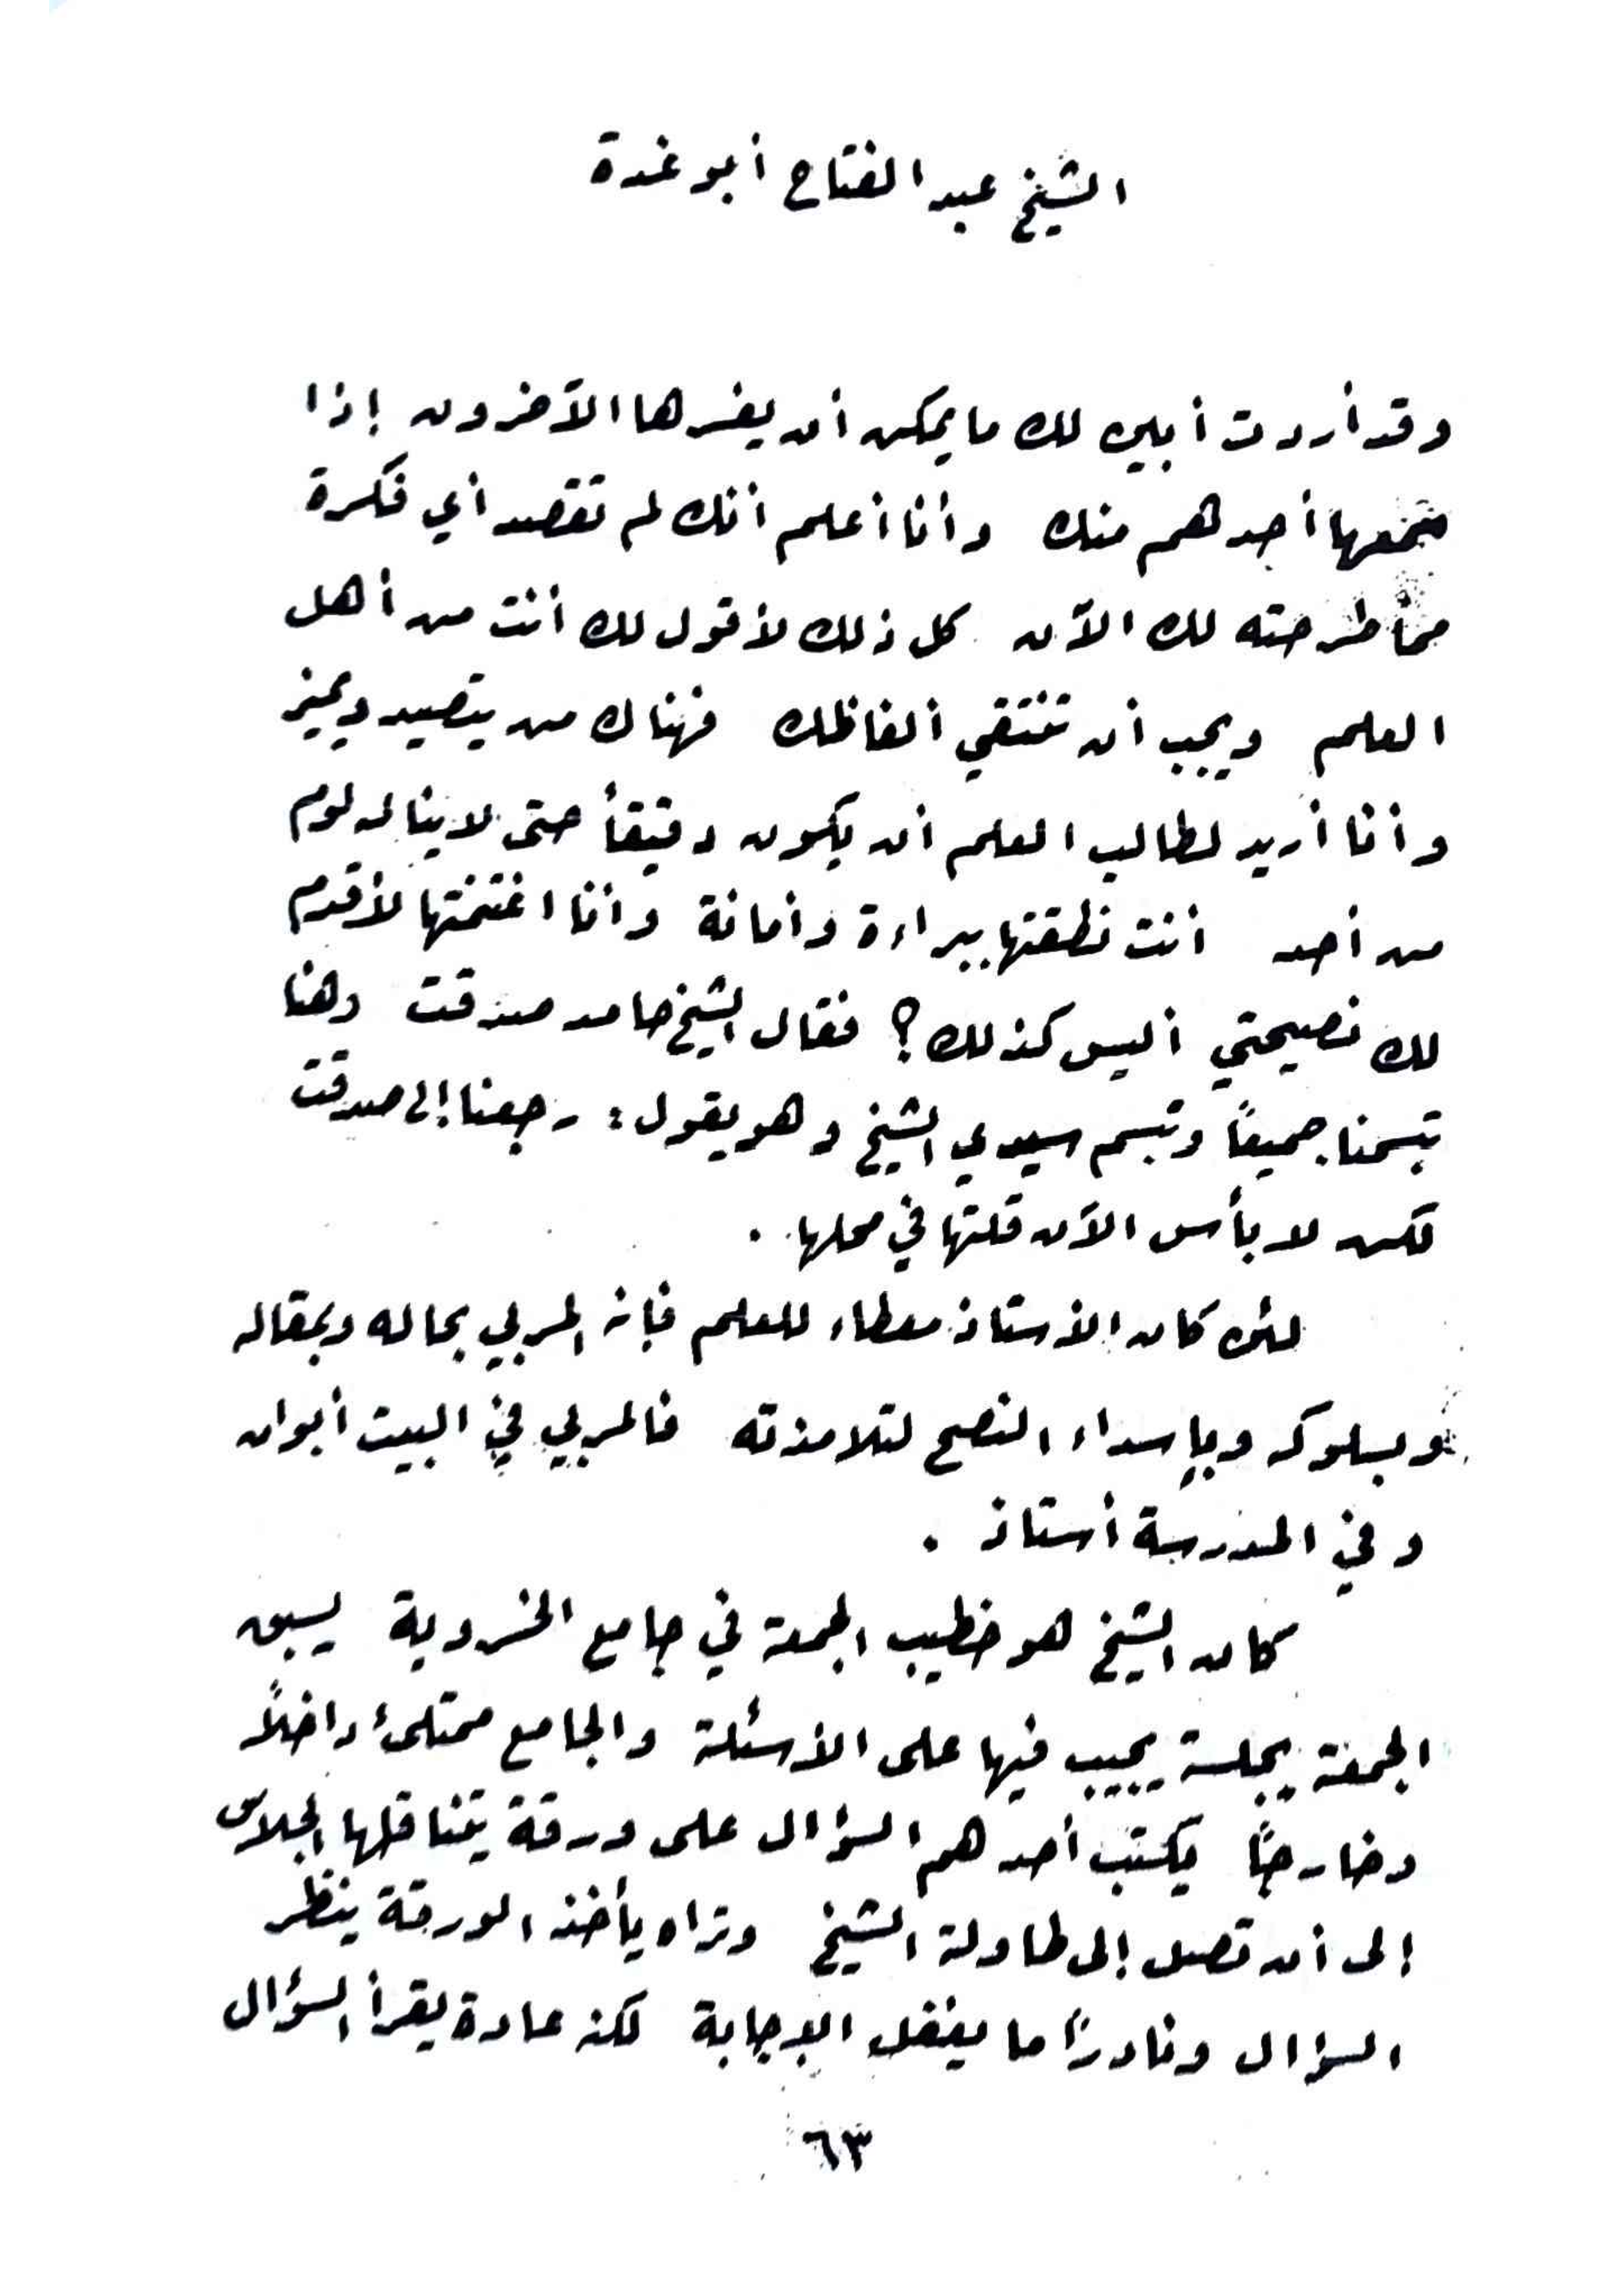 الشيخ عبد الفتاح أبو غدة
وقد أردت أبين لك ما يمكن أن يفسرها الآخرون إذا
سمعها أحدهم منك وأنا أعلم أنك لم تقصد أي فكرة
مما طرحته لك الآن كل ذلك لأقول لك أنت من أهل
العلم ويجب أن تنتقي ألفاظك فهناك من يتصيد ويميز
وأنا أريد لطالب العلم أن يكون دقيقاً حتى لا يناله لوم
من أحد أنت نطقتها ببراءة وأمانة وأنا اغتنمتها لأقدم
لك نصيحتي أليس كذلك؟ فقال الشيخ حامد صدقت وهنا
تبسمنا جميعاً وتبسم سيدي الشيخ وهو يقول: رجعنا إلى صدقت
لكن لا بأس الآن قلتها في محلها.
لئن كان الأستاذ معطاء للعلم فإنه المربي بحاله وبمقاله
وبسلوكه وبإسداء النصح لتلامذته فالمربي في البيت أبوان
وفي المدرسة أستاذ.
كان الشيخ هو خطيب الجمعة في جامع الخسروية يسبق
الجمعة بجلسة يجيب فيها على الأسئلة والجامع ممتلئ داخلاً
وخارجاً يكتب أحدهم السؤال على ورقة يتناقلها الجلاس
إلى أن تصل إلى طاولة الشيخ وتراه يأخذ الورقة ينظر
السؤال ونادراً ما يغفل الإجابة لكنه عادة يقرأ السؤال
٦٣